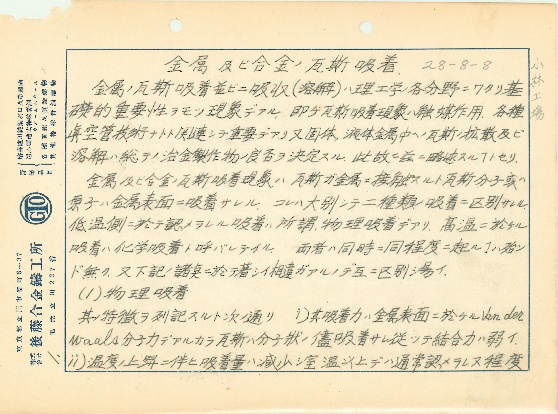 金属及ビ合金ノ瓦斯吸着. 28-8-8
小林工場
金属ノ瓦斯吸着並ビニ吸収(溶解)ハ理工学ノ各分野ニワタリ基
礎的重要性ヲモツ現象デアル. 即チ瓦斯吸着現象ハ触媒作用, 各種
真空管技術ナドト関連シテ重要デアリ又固体, 液体金属中ヘノ瓦斯ノ拡散及ビ
溶解ハ総テノ冶金製作物ノ良否ヲ決定スル. 此故ニ茲ニ略述スル
金属及ビ合金ノ瓦斯吸着現象ハ瓦斯ガ金属ニ接触スルト瓦斯分子或ハ
原子ハ金属表面ニ吸着サレル. コレハ大別シテ二種類ノ吸着ニ区別サレ
低温側ニ於テ認メラレル吸着ハ所謂物理吸着デアリ, 高温ニ於ケル
吸着ハ化学吸着ト呼バレテイル. 両者ハ同時ニ同程度ニ起ルコトハ殆ン
ド無ク, 又下記ノ諸点ニ於テ著シイ相違ガアルノデ互ニ区別シ易イ.
(1) 物理吸着
其ノ特徴ヲ列記スルト次ノ通リ i) 其吸着力ハ金属表面ニ於ケル Van der
waals 分子力デアルカラ瓦斯ハ分子状ノ儘吸着サレ従ツテ結合力ハ弱イ.
ii) 温度ノ上昇ニ伴ヒ吸着量ハ減少シ室温以上デハ通常認メラレヌ程度
GTO
株式会社 後藤合金鋳工所
東京都立川市曙町 6-37
電話立川 227番